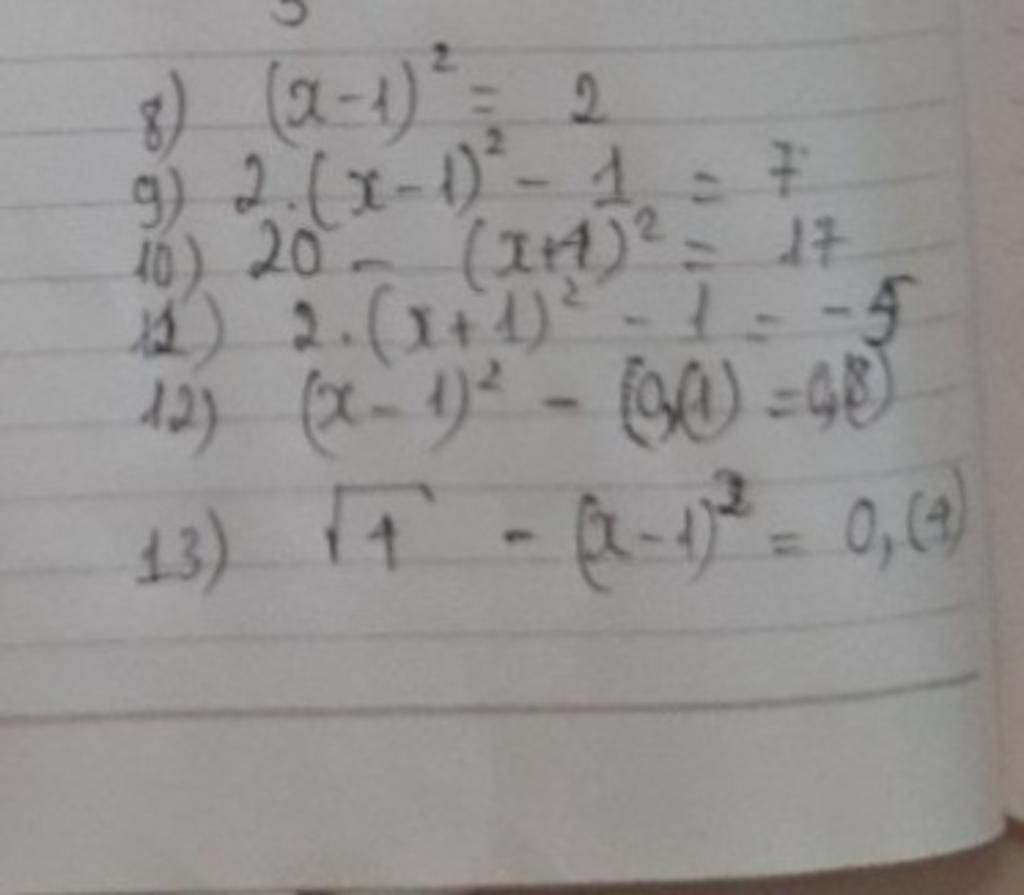 8) (x-1)² = 2
9) 2.(x-1)² - 1 = 7
10) 20 - (x+1)² = 17
11) 2.(x+1)² - 1 = -5
12) (x-1)² - 0,(1) = 0,(8)
13) √1 - (x-1)² = 0,(4)